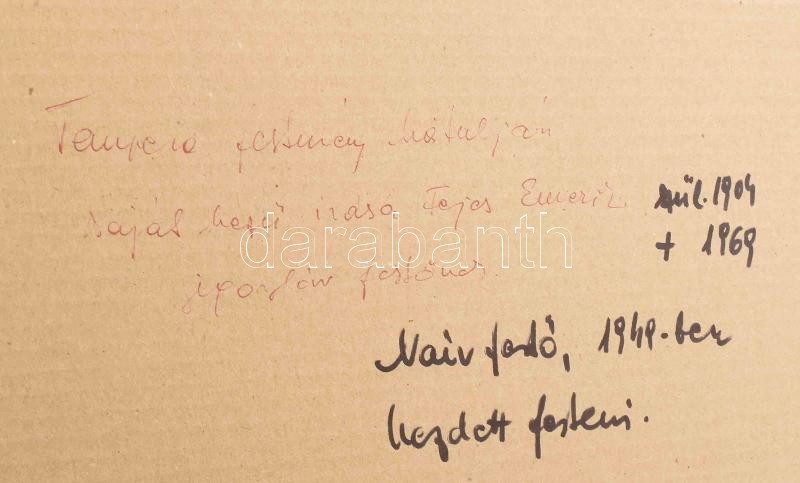 Tempera festmény hátulján
saját kezű írása Fejes Emerik szül. 1904
jugoszláv festőnek. + 1969
darabanth
Naiv festő, 1949-ben
kezdett festeni.